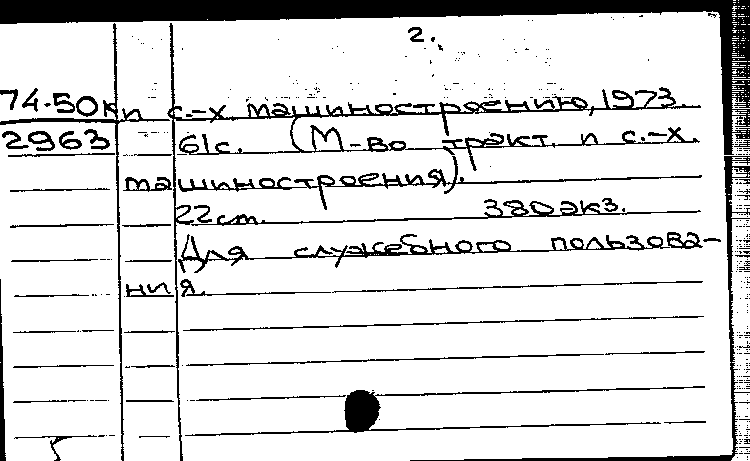 2.
74-50кп с.-х. машиностроению, 1973.
2963 61с. (М-во тракт. и с.-х.
машиностроения).
22 cm. 380 экз.
Для служебного пользова-
ния.